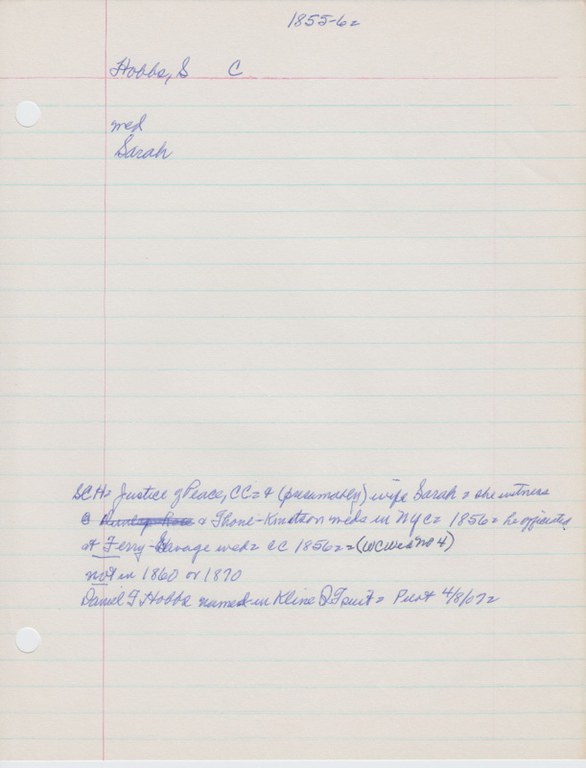 1855-62
Hobbs, S C
med
Sarah
SCH= Justice of Peace, CC= & (presumably) wife Sarah = she witness
@ & Thone-Kinition weds in NYC= 1856= he officiated
at Ferry-Savage wed= CC 1856== (WCWed no 4)
not in 1860 or 1870
Daniel F Hobbs named in Kline Q T suit= Pilot 4/8/07=